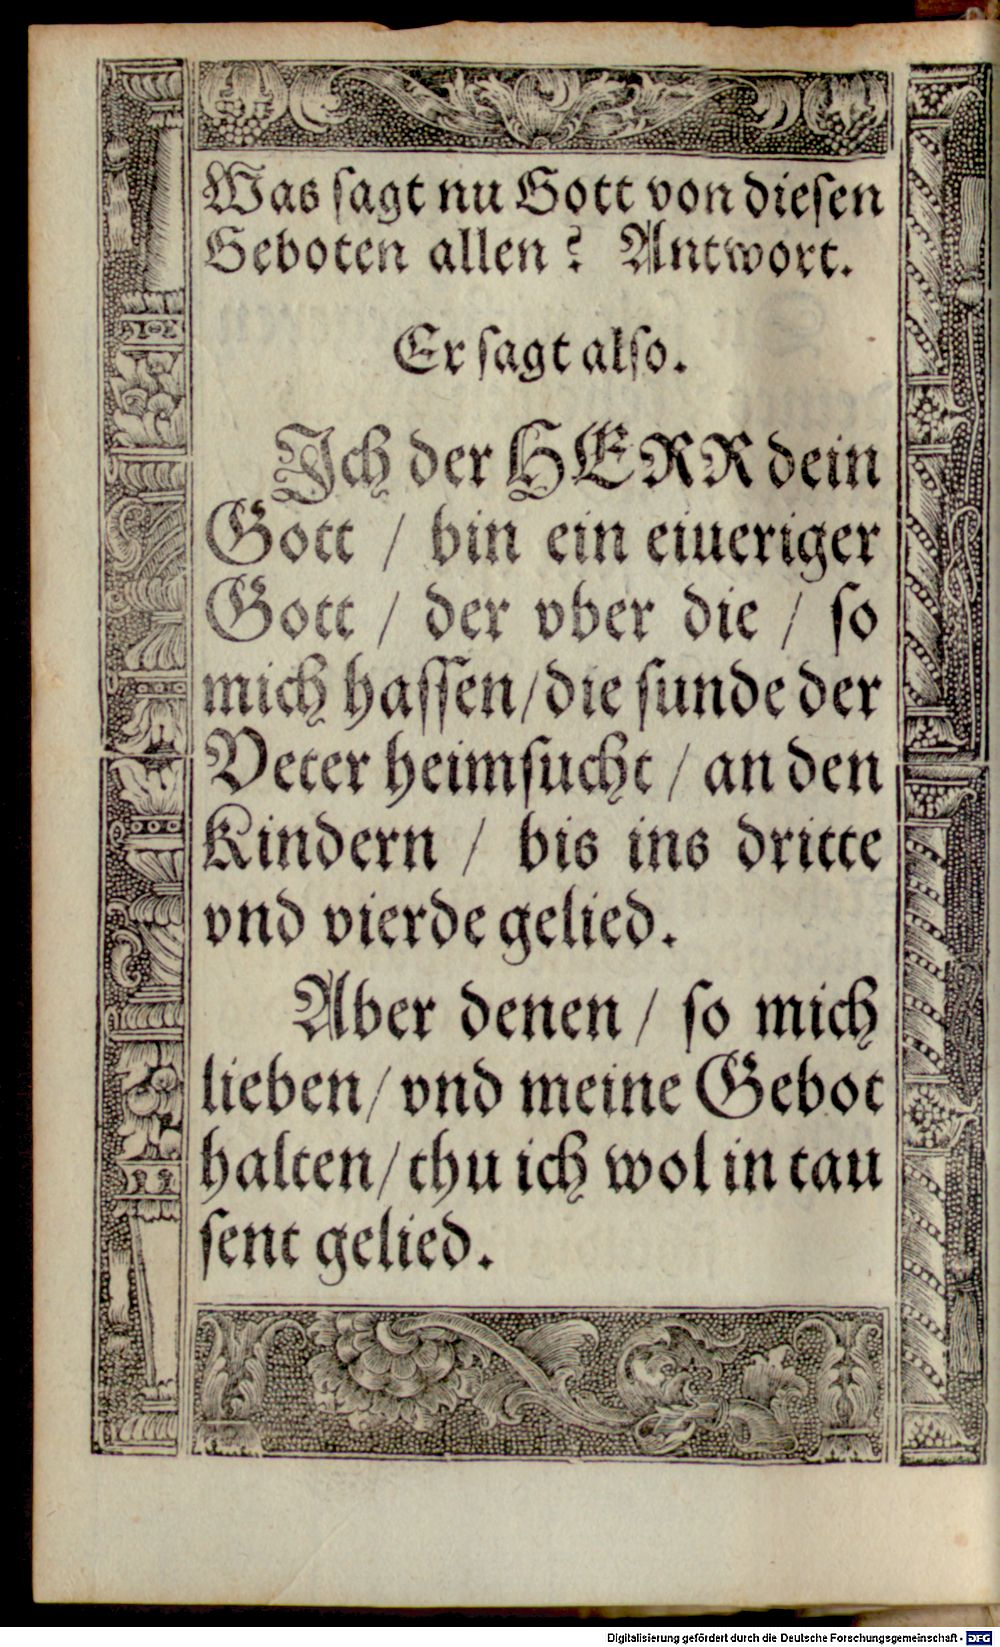 Was ſagt nu Gott von dieſen
Geboten allen? Antwort.
Er ſagt alſo.
Ich der HERR dein
Gott / bin ein eiueriger
Gott / der vber die / ſo
mich haſſen/ die ſunde der
Veter heimſucht / an den
Kindern / bis ins dritte
vnd vierde gelied.
Aber denen / ſo mich
lieben/ vnd meine Gebot
halten/ thu ich wol in tau
ſent gelied.
Digitalisierung gefördert durch die Deutsche Forschungsgemeinschaft - DFG